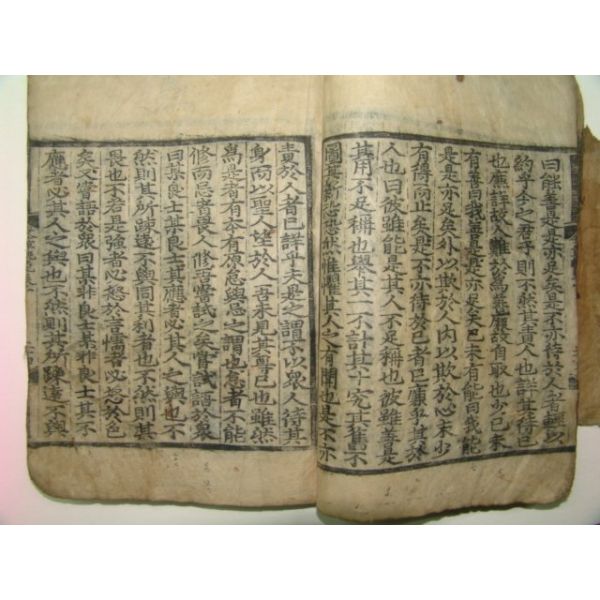 曰能善是是亦足矣是不亦待於人者輕以
約乎今之君子則不然其責人也詳其待已
也廉詳故人難於爲善廉故自取也少已未
有善曰我善是是亦足矣已未有能曰我能
是是亦足矣外以欺於人内以欺於心未少
有得而止矣是不亦待於已者已廉乎其於
人也曰彼雖能是其人不足稱也彼雖善是
其用不足稱也舉其一不計其十究其舊不
圖其新恐恐然惟懼其人之有聞也是不亦
責於人者已詳乎夫是之謂不以衆人待其
身而以聖人望於人吾未見其尊已也雖然
爲是者有本有原怠與忌之謂也怠者不能
修而忌者畏人修吾嘗試之矣嘗試語於衆
曰某良士某良士其應者必其人之與也不
然則其所疎遠不與同其利者也不然則其
畏也不若是強者必怒於言懦者必怒於色
矣又嘗語於衆曰某非良士某非良士其不
應者必其人之與也不然則其所疎遠不與